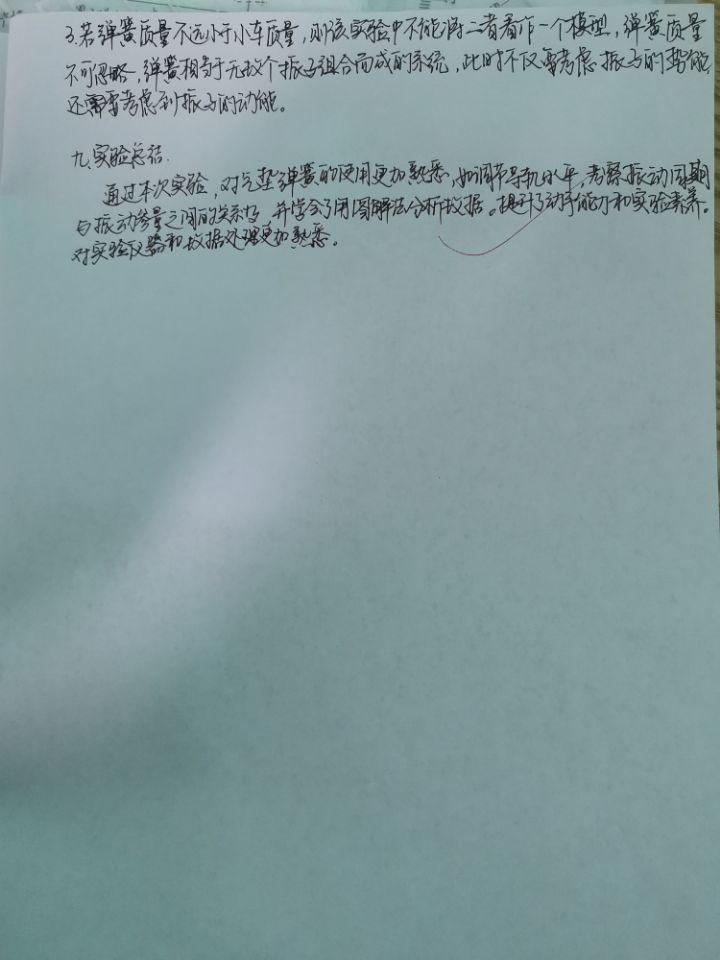 3.若弹簧质量不远小于小车质量,则该实验中不能将二者看作一个模型,弹簧质量
不可忽略,弹簧相当于无数个振子组合而成的系统,此时不仅要考虑振子的势能,
还需要考虑到振子的动能。
九.实验总结.
通过本次实验,对气垫弹簧的使用更加熟悉,如调节导轨水平,考察振动周期
与振动参量之间的关系等,并学会了用图解法分析数据。提升了动手能力和实验素养。
对实验仪器和数据处理更加熟悉。